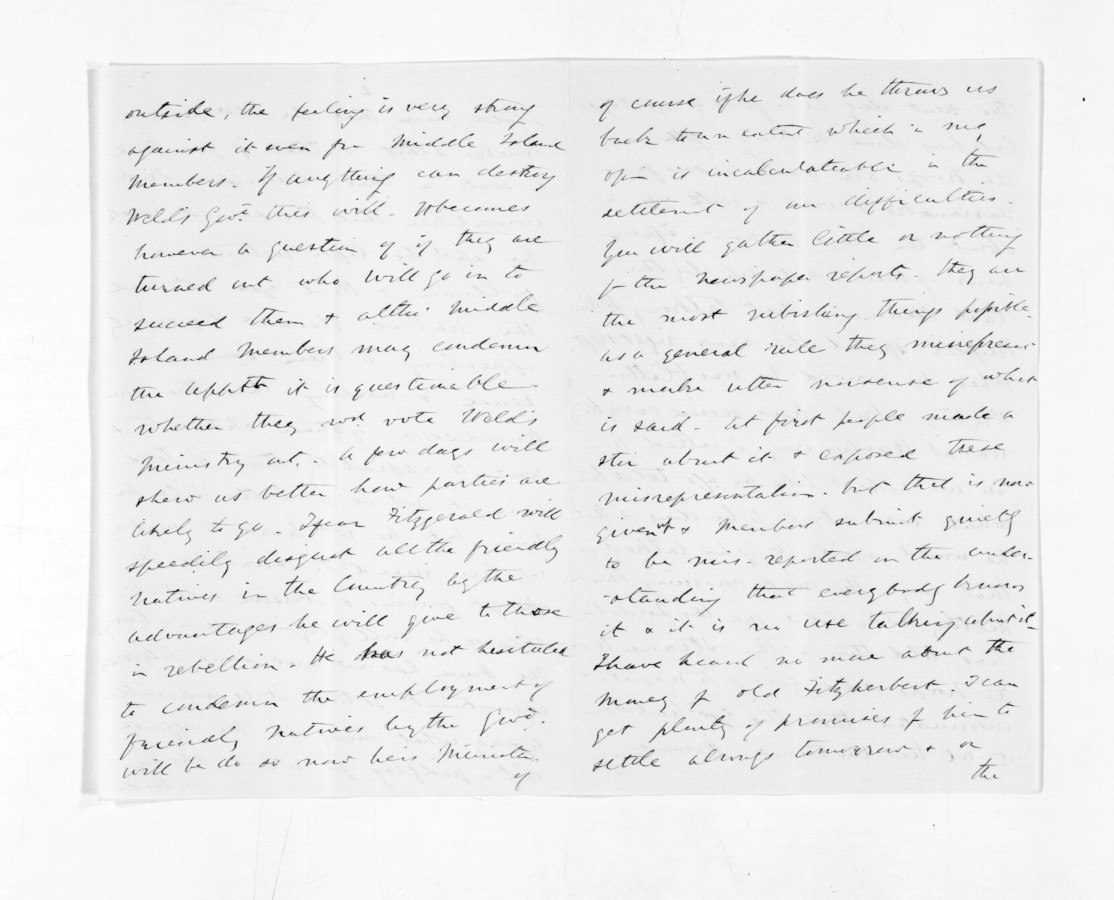 outside, the feeling is very strong
against it even fm Middle Island
Members. If anything can destroy
Weld's Govt. this will. It becomes
however a question of if they are
turned out who will go in to
succeed them & altho' Middle
Island Members may condemn
the Apptt it is questionable
whether they wod. vote Weld's
Ministry out. - A few days will
shew us better how parties are
likely to go. I fear Fitzgerald will
speedily disgust all the friendly
Natives in the Country by the
advantages he will give to those
in rebellion. He has not hesitated
to condemn the employment of
friendly Natives by the Govt.
will he do so now he is Minister.
of
of course if he does he throws us
back to an extent which in my
opn is incalculateable in the
settlement of our difficulties.
You will gather little or nothing
fm the newspaper reports. They are
the most rubishing things possible.
as a general rule they misrepresent
& make utter nonsense of what
is said. At first people made a
stir about it & exposed these
misrepresentations. but that is now
given up & Members submit quietly
to be mis-reported on the under-
-standing that everybody knows
it & it is no use talking about it -
I have heard no more about the
money fm old Fitzherbert. I can
get plenty of promises fm him to
settle always tomorrow & or
the